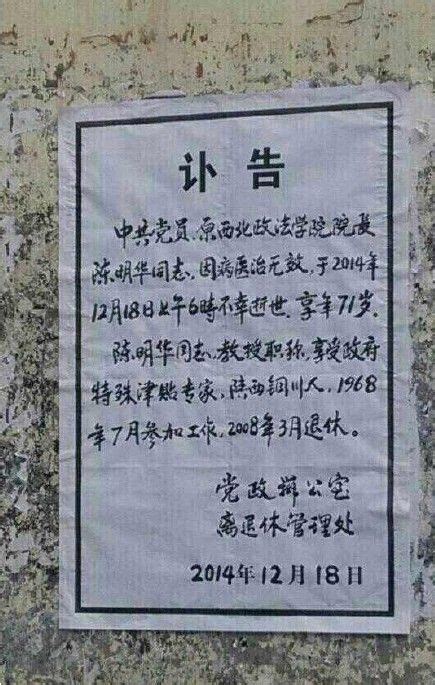 讣告
中共党员、原西北政法学院院長
陈明华同志，因病医治无效，于2014年
12月18日上午6時不幸逝世，享年71岁。
陈明华同志，教授职称，享受政府
特殊津贴专家，陕西铜川人，1968
年7月参加工作，2008年3月退休。
党政辦公室
离退休管理处
2014年12月18日